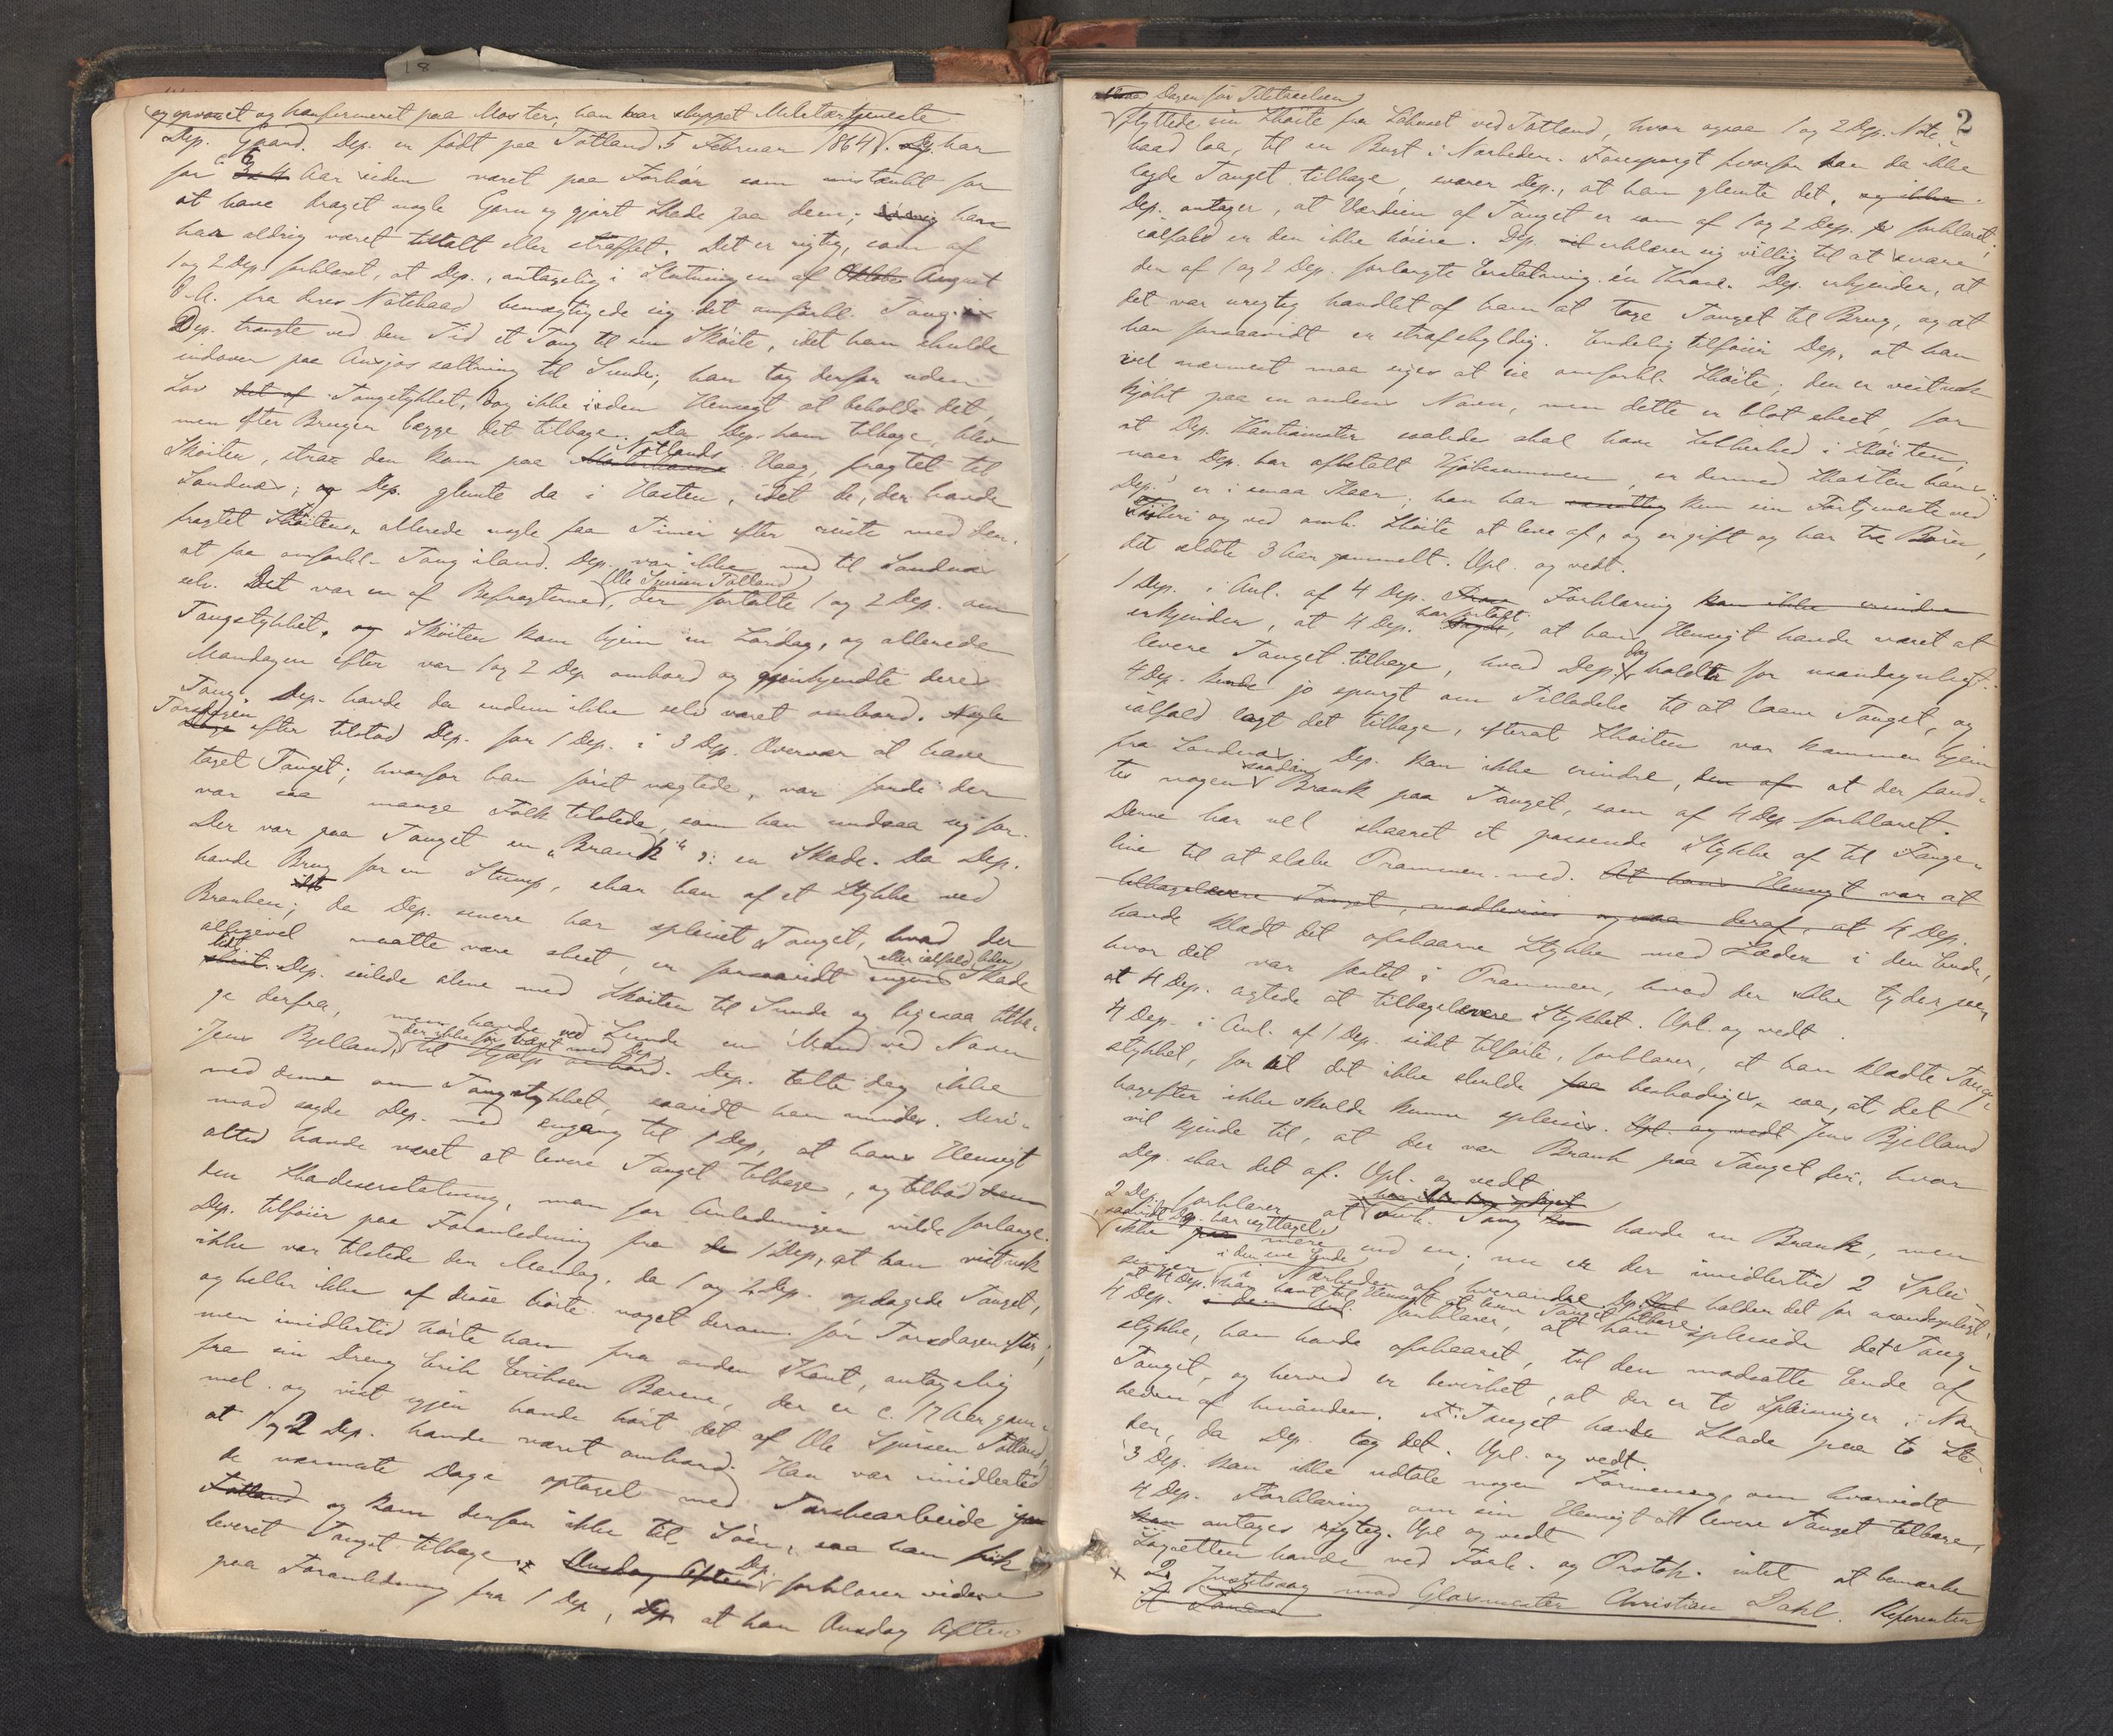 18
og opvoxet og konfirmeret paa Moster, han har sluppet Militærtjeneste
Dep. Gaard. Dep. er født paa Totland 5 Februar 1864. Dep. har
for c. 6 3 a 4 Aar siden været paa Forhør som mistænkt for
at have draget nogle Garn og gjort Skade paa dem; han
har aldrig været tiltalt eller straffet. Det er rigtig, som af
1 og 2 Dep. forklaret, at Dep., antagelig i Slutningen af Oktober August
d. A. fra deres Notebaad bemægtigede sig det omforkl. Toug.
Dep. trængte ved den Tid et Toug til sin Skøite, idet han skulde
indover paa Ansjossaltning til Sunde; han tog derfor uden
Lov det af Tougstykket, dog ikke i den Hensigt at beholde det,
men efter Brugen lægge det tilbage. Da Dep. kom tilbage, blev
Skøiten, strax den kom paa Totlands Vaag, fragtet til
Sandnæs; og Dep. glemte da i Hasten, idet de, der havde
fragtet Skøiten, allerede nogle faa Timer efter reiste med den,
at faa omforkl. Toug iland. Dep. var ikke med til Sandnæs
selv. Det var en af Befragterne, Ole Sjursen Totland der fortalte 1 og 2 Dep. om
Tougstykket, og Skøiten kom hjem en Lørdag, og allerede
Mandagen efter var 1 og 2 Dep ombord og gjenkjendte deres
Toug. Dep. havde da endnu ikke selv været ombord. Nogle
Torsdagen Dage efter tilstod Dep. for 1 Dep. i 3 Dep. Overvær at have
taget Touget; hvorfor han først nægtede, var fordi der
var saa mange Folk tilstede, som han undsaa sig for.
Der var paa Touget en „Brank“ ɔ: en Skade. Da Dep.
havde Brug for en Stump, skar han af et Stykke ved
Branken; da Dep. senere har spleiset Touget, hvad der
alligevel maatte være skeet, er forsaavidt ingen eller ialfald liden Skade
skeet. Dep. seilede alene med Skøiten til Sunde og ligesaa tilba-
ge derfra, men havde ved Sunde en Mand ved Navn
Jens Bjelland, der ikke før været med Dep., til Hjælp ombord. Dep. talte dog ikke
med denne om Tougstykket, saavidt han mindes. Deri-
mod sagde Dep. med engang til 1 Dep, at hans Hensigt
altid havde været at levere Touget tilbage, og tilbød
den Skadeserstatning, man for Anledningen vilde forlange.
Dep. tilføier paa Foranledning fra 1 Dep., at han vistnok
ikke var tilstede den Mandag, da 1 og 2 Dep. opdagede Touget,
og heller ikke af disse hørte noget derom før Torsdagen efter;
men imidlertid hørte han fra anden Kant, antagelig
fra sin Dreng Erik Eriksen Barane, der er c. 17 Aar gam-
mel og vist igjen havde hørt det af Ole Sjursen Totland,
at 1 og 2 Dep. havde været ombord. Han var imidlertid
de nærmeste Dage optaget med Tarskearbeide
Totland og kom derfor ikke til Søen, saa han fik
leveret Touget tilbage. Onsdag Aften Dep. forklarer videre
paa Foranledning fra 1 Dep, Dep at han Onsdag Aften
2
Dagen før Tilstaaelsen
flyttede sin Skøite fra Søhuset ved Totland, hvor ogsaa 1 og 2 Dep. Note-
baad laa, til en Bugt i Nærheden. Foresporgt hvorfor han da ikke
lagde Touget tilbage, svarer Dep., at han glemte det, og ikke
Dep. antager, at Værdien af Touget er som af 1 og 2 Dep. forklaret;
ialfald er den ikke høiere. Dep. erklærer sig villig til at svare
den af 1 og 2 Dep. forlangte Erstatning én Krone. Dep. erkjender, at
det var urigtig handlet af ham at tage Touget til Brug, og at
han forsaavidt er strafskyldig. Endelig tilføier Dep., at han
vel nærmest maa siges at eie omforkl. Skøite; den er vistnok
kjøbt paa en andens Navn, men dette er blot skeet, for
at Dep. Kautionister saalede skal have Sikkerhed i Skøiten;
naar Dep. har afbetalt Kjøbesummen, er dermed Skøiten hans.
Dep. er i smaa Kaar; han har kun sin Fortjeneste ved
Fiskeri og ved omh. Skøite at leve af, og er gift og har tre Børn,
det ældste 3 Aar gammelt. Opl. og vedt.
1 Dep. i Anl. af 4 Dep. Forklaring kan ikke erindre
erkjender, at 4 Dep. har fortalt, at hans Hensigt havde været at
levere Touget tilbage, hvad Dep. dog holdt for usandsynligt.
4 Dep. kunde jo spurgt om Tilladelse til at laane Touget, og
ialfald lagt det tilbage, efterat Skøiten var kommen hjem
fra Sandnæs. Dep. kan ikke erindre, den af at der fand-
tes nogen saadan Brank paa Touget, som af 4 Dep forklaret.
Denne har vel skaaret et passende Stykke af til Fange-
line til at slæbe Prammen med. At hans Hensigt var at
tilbagelevere Touget, modbevises ogsaa deraf, at 4 Dep.
havde klædt det afskaarne Stykke med Læder i den Ende,
hvor det var fæstet i Prammen, hvad der ikke tyder paa,
at 4 Dep. agtede at tilbagelevere Stykket. Opl. og vedt.
4 Dep. i Anl. af 1 Dep. sidst tilførte, forklarer, at han klædte Toug-
stykket, for at det ikke skulde faa beskadiges saa, at det
bagefter ikke skulde kunne spleises. Opl. og vedt Jens Bjelland
vil kjende til, at der var Brank paa Touget der, hvor
Dep. skar det af. Opl. og vedt
2 Dep. forklarer at omh. Toug havde en Brank, men
saavidt Dep. har iagttaget ikke mere end en; nu er der imidlertid 2 Splei-
singer i den ene Ende i Nærheden af hverandre. Dep. holder det for usandsynligt,
at 4 Dep. har havt til Hensigt at levere Touget tilbage.
4 Dep. forklarer, at han spleisede det Toug-
stykke, han havde afskaaret, til den modsatte Ende af
Touget, og herved er bevirket, at der er to Spleisninger i Nær-
heden af hinanden. Touget havde Skade paa to Ste-
der, da Dep. tog det. Opl. og vedt.
3 Dep. kan ikke udtale nogen Formening, om hvorvidt
4 Dep. Forklaring om sin Hensigt at levere Touget tilbage,
kan antages rigtig. Opl og vedt
Lagretten havde ved Forh. og Protok. intet at bemærke
x 2. Justitssag mod Glasmester Christian Dahl. Referenten